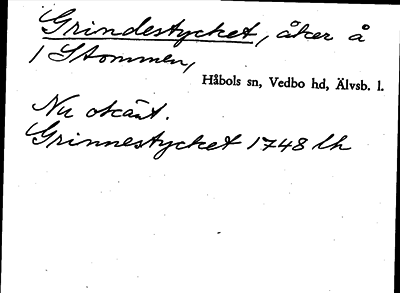 Grindestycket, åker å
1 Stommen,
Håbols sn, Vedbo hd, Älvsb. l.
Nu okänt.
Grinnestycket 1748 lh